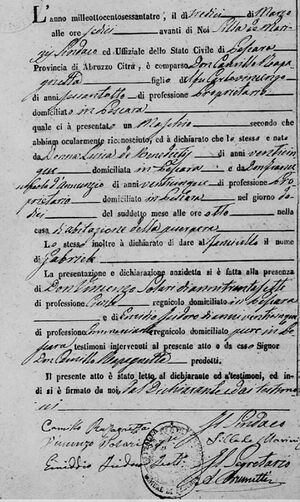 L'anno milleottocentosessantatre, il dì tredici di Marzo
alle ore sedici avanti di Noi Silla de Marinis
Sindaco ed Uffiziale dello Stato Civile di Pescara
Provincia di Abruzzo Citra, è comparso Don Camillo Rapagnetta
figlio di
di anni sessantotto di professione proprietario
domiciliato in Pescara
quale ci à presentato un Maschio secondo che
abbiamo ocularmente riconosciuto, ed à dichiarato che lo stesso è nato
da Donna Luisa de Benedictis di anni venticinque
domiciliata in Pescara e da Don Francesco
Paolo d'Annunzio di anni venticinque di professione proprietario
domiciliato in Pescara nel giorno dodici
del suddetto mese alle ore otto nella
casa d'abitazione della puerpera
Lo stesso inoltre à dichiarato di dare al fanciullo il nome
di Gabriele
La presentazione e dichiarazione anzidetta si è fatta alla presenza
di Don Vincenzo
di professione regnicolo domiciliato in Pescara
e di
di professione regnicolo domiciliato pure in Pescara
testimoni intervenuti al presente atto e da esso Signor
Don Camillo Rapagnetta prodotti.
Il presente atto è stato letto, al dichiarante ed a'testimoni, ed indi
si è firmato da noi, dal Dichiarante e dai testimoni
Camillo Rapagnetta
Il Sindaco
Vincenzo
Silla de Marinis
Emiddio Isidoro
Il Segretario